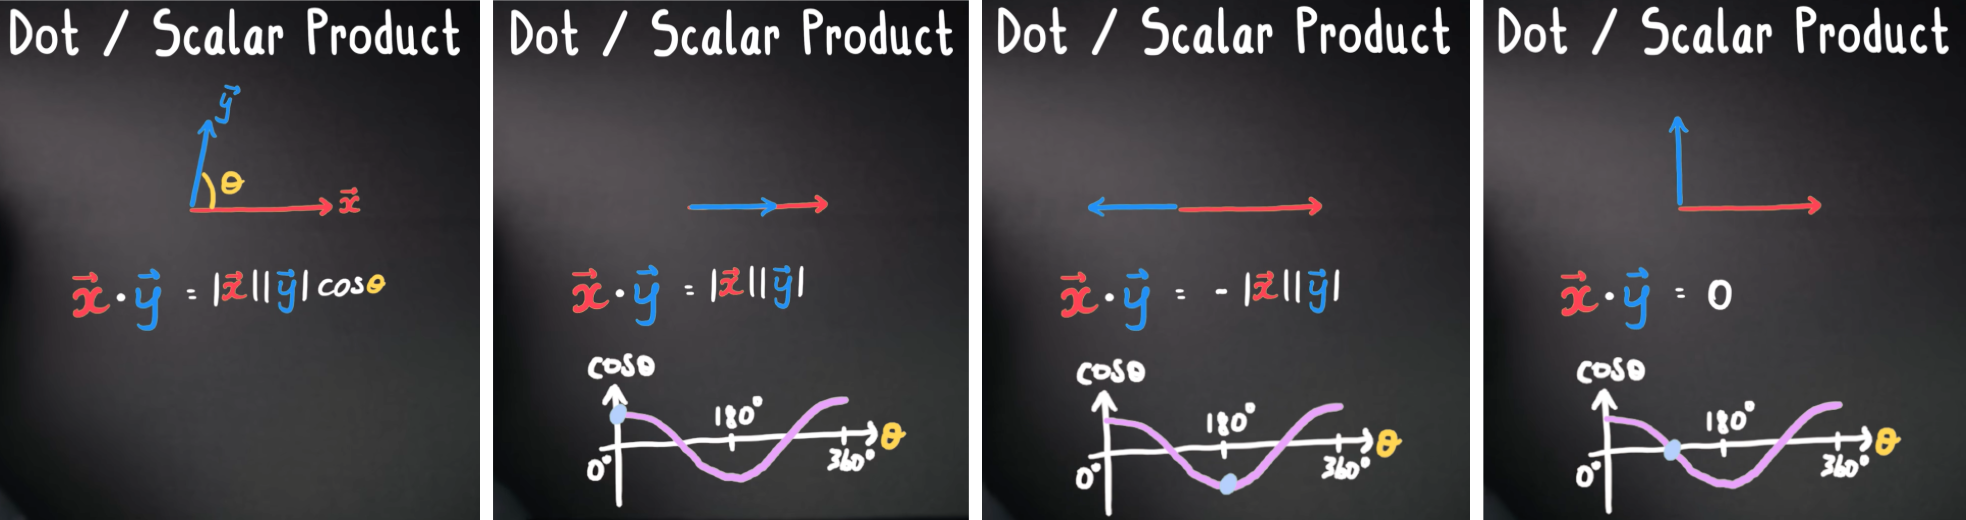 Dot / Scalar Product
y⃗
θ
x⃗
x⃗ · y⃗ = |x⃗||y⃗| cosθ
Dot / Scalar Product
x⃗ · y⃗ = |x⃗||y⃗|
cosθ
180°
θ
0°
360°
Dot / Scalar Product
x⃗ · y⃗ = - |x⃗||y⃗|
cosθ
180°
θ
0°
360°
Dot / Scalar Product
x⃗ · y⃗ = 0
cosθ
180°
θ
0°
360°